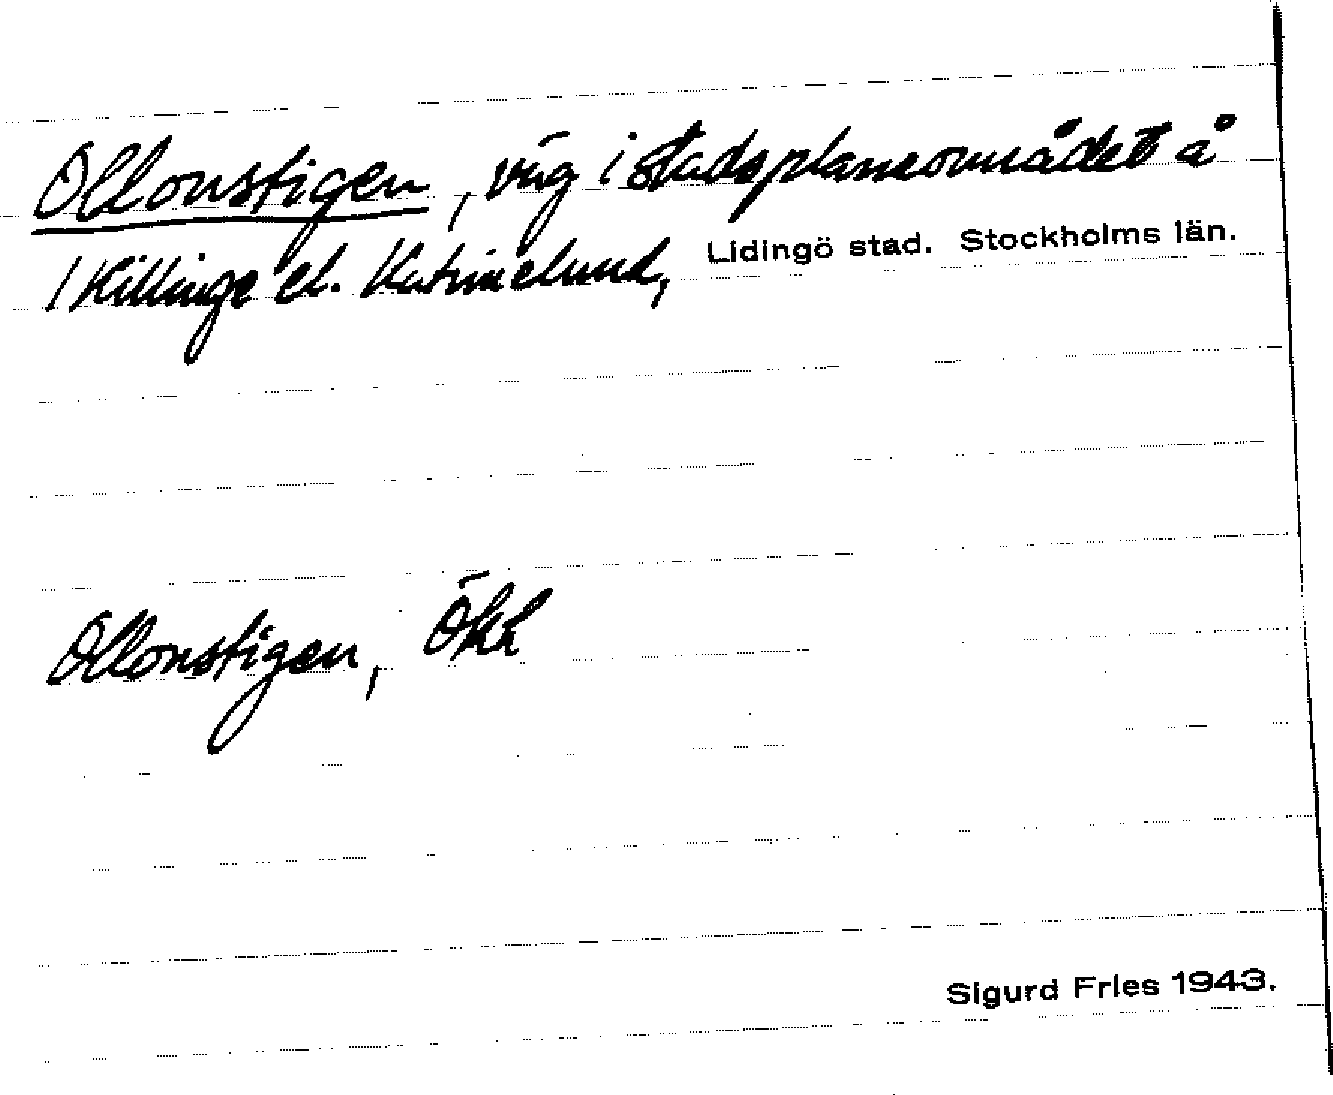 Ollonstigen, väg i stadsplaneområdet å
1 Killinge el. Katrinelund, Lidingö stad. Stockholms län.
Ollonstigen, Ökk
Sigurd Fries 1943.